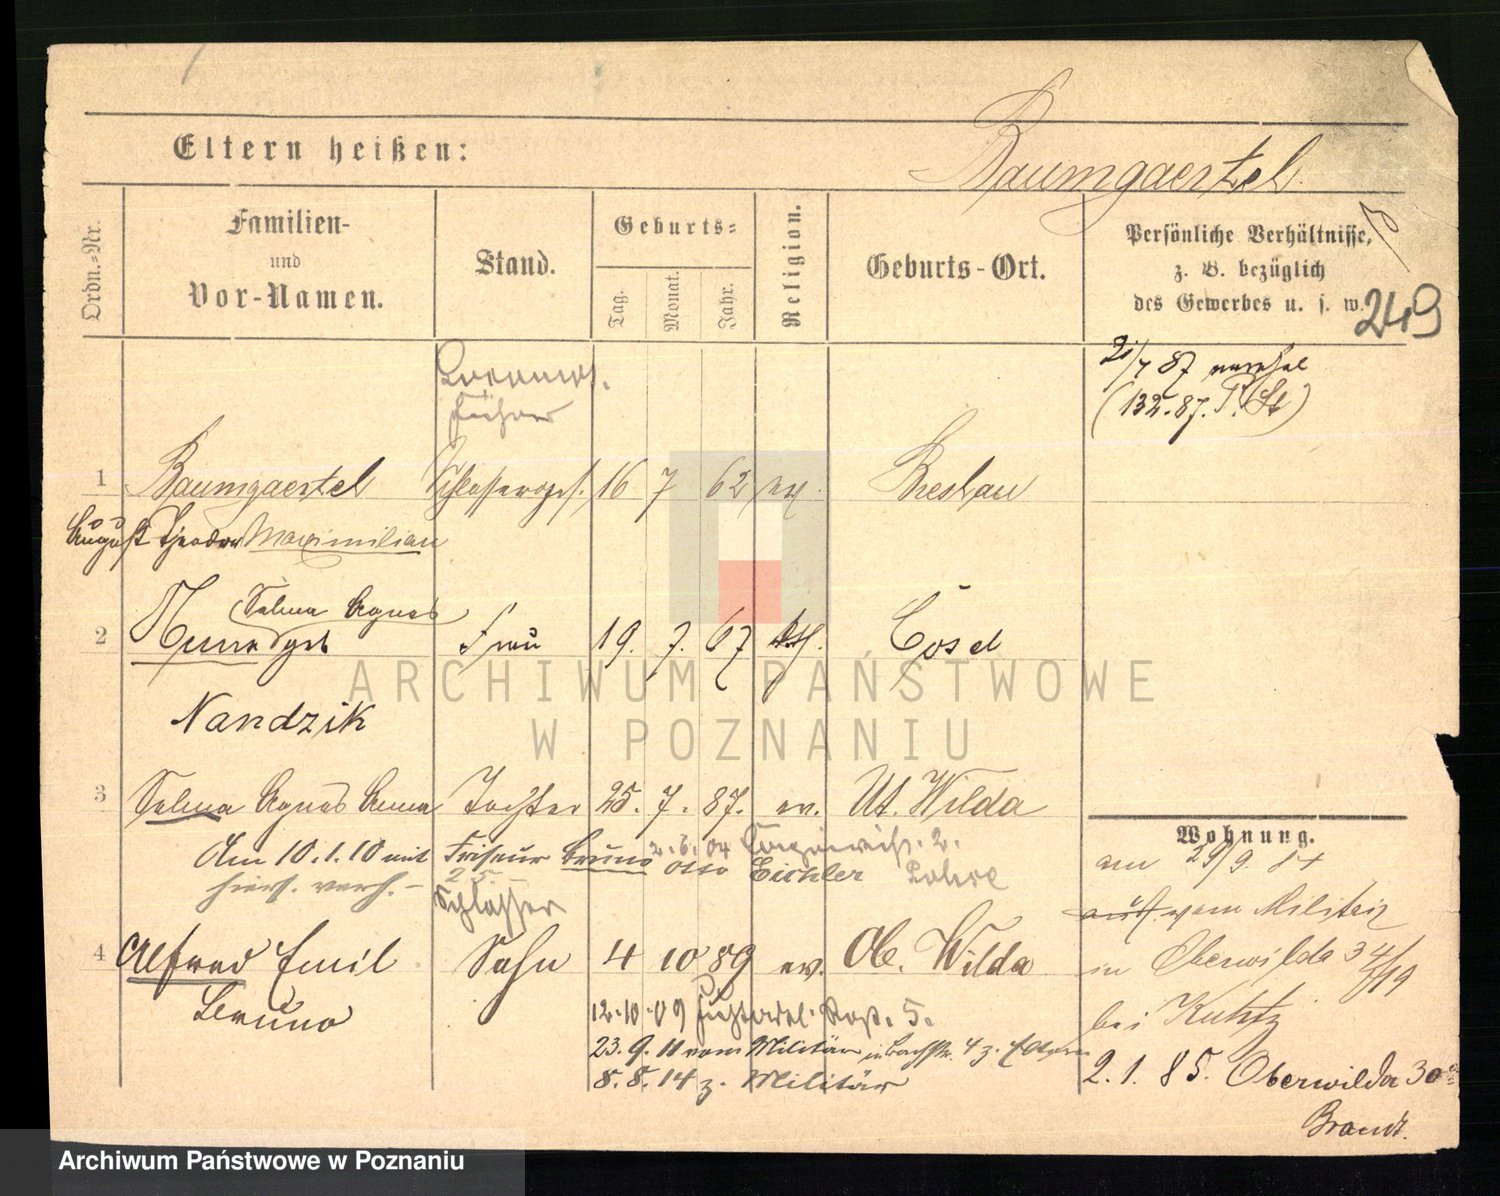 Eltern heißen:
Baumgaertel
Ordn.=Nr.
Familien-
und
Vor-Namen.
Stand.
Geburts=
Tag.
Monat.
Jahr.
Religion.
Geburts-Ort.
Persönliche Verhältnisse,
z. B. bezüglich
des Gewerbes u. s. w.
249
21/7 87
(132.87. P. St)
führer
1 Baumgaertel Schlosserges. 16 7 62 ev. Breslau
August Theodor Maximilian
Selma Agnes
2 geb Frau 19. 7. 67 kath. Cosel
Nandzik
3 Selma Agnes Anna Tochter 25. 7. 87. ev. Ut. Wilda
2.6.04
Am 10.1.10 mit Friseur Bruno Otto Eichler
hiers. verh. –
Schlosser
4 Alfred Emil Sohn 4 10 89 ev. Ob. Wilda
Bruno
12.10.09
23.9.11 vom Militär
8.8.14 z. Militär
Wohnung.
am 29/9. 84
vom Militair
in Oberwilda 34/
bei
2.1.85. Oberwilda 30
Brandt.
ARCHIWUM PAŃSTWOWE
W POZNANIU
Archiwum Państwowe w Poznaniu